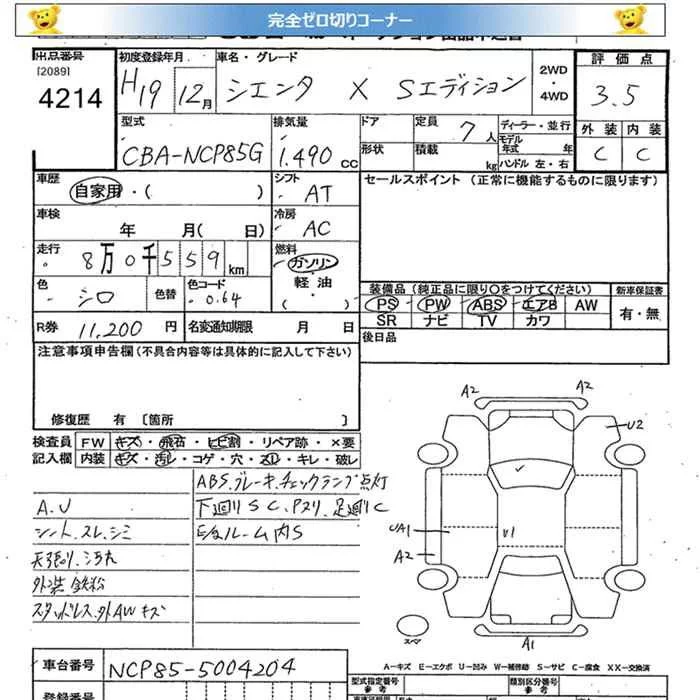 完全ゼロ切りコーナー
出品番号
[2089]
4214
初度登録年月
H19 12月
車名・グレード
シエンタ X Sエディション
2WD
4WD
評価点
3.5
外装 内装
C C
型式
CBA-NCP85G
排気量
1.490 CC
ドア
形状
定員 7人
積載 kg
ディーラー・並行
モデル年式 年
ハンドル 左・右
車歴
自家用・( )
シフト
AT
セールスポイント (正常に機能するものに限ります)
車検
年 月( 日)
冷房
AC
走行
8万0千559km
燃料
ガソリン
軽油
( )
色
シロ
色替
色コード
064
装備品 (純正品に限り〇をつけてください)
新車保証書
PS PW ABS エアB AW
有・無
SR ナビ TV カワ
R券 11,200 円
名変通知期限 月 日
後日品
注意事項申告欄 (不具合内容等は具体的に記入して下さい)
修復歴 有 〔箇所 〕
検査員
記入欄
FW キズ・飛石・ヒビ割・リペア跡・×要
内装 キズ・汚レ・コゲ・穴・スレ・キレ・破レ
A.U
シート、スレ、シミ
天張り、汚れ
外装 鉄粉
スタッドレス.外AWキズ
ABS.ブレーキ.チェックランプ点灯
下廻りSC.Pスリ.足廻りC
E/gルーム内S
A2
A2
U2
UA1
A2
U1
A1
スペア
A-キズ E-エクボ U-凹み W-補修跡 S-サビ C-腐食 XX-交換済
車台番号
NCP85-5004204
登録番号
型式指定番号
参考
類別区分番号
参考